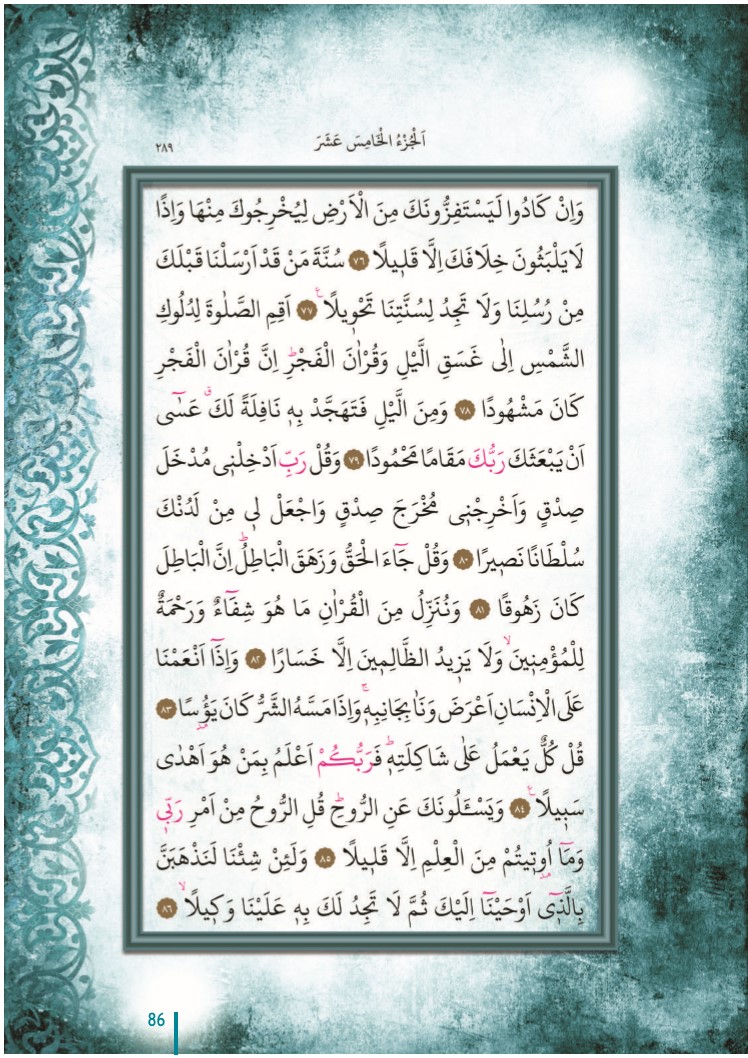 اَلْجُزْءُ الْخَامِسَ عَشَرَ
٢٨٩
وَاِنْ كَادُوا لَيَسْتَفِزُّونَكَ مِنَ الْاَرْضِ لِيُخْرِجُوكَ مِنْهَا وَاِذًا
لَا يَلْبَثُونَ خِلَافَكَ اِلَّا قَلٖيلًا ﴿٧٦﴾ سُنَّةَ مَنْ قَدْ اَرْسَلْنَا قَبْلَكَ
مِنْ رُسُلِنَا وَلَا تَجِدُ لِسُنَّتِنَا تَحْوٖيلًاࣖ ﴿٧٧﴾ اَقِمِ الصَّلٰوةَ لِدُلُوكِ
الشَّمْسِ اِلٰى غَسَقِ الَّيْلِ وَقُرْاٰنَ الْفَجْرِؕ اِنَّ قُرْاٰنَ الْفَجْرِ
كَانَ مَشْهُودًا ﴿٧٨﴾ وَمِنَ الَّيْلِ فَتَهَجَّدْ بِهٖ نَافِلَةً لَكَࣗ عَسٰٓى
اَنْ يَبْعَثَكَ رَبُّكَ مَقَامًا مَحْمُودًا ﴿٧٩﴾ وَقُلْ رَبِّ اَدْخِلْنٖى مُدْخَلَ
صِدْقٍ وَاَخْرِجْنٖى مُخْرَجَ صِدْقٍ وَاجْعَلْ لٖى مِنْ لَدُنْكَ
سُلْطَانًا نَصٖيرًا ﴿٨٠﴾ وَقُلْ جَٓاءَ الْحَقُّ وَزَهَقَ الْبَاطِلُؕ اِنَّ الْبَاطِلَ
كَانَ زَهُوقًا ﴿٨١﴾ وَنُنَزِّلُ مِنَ الْقُرْاٰنِ مَا هُوَ شِفَٓاءٌ وَرَحْمَةٌ
لِلْمُؤْمِنٖينَۙ وَلَا يَزٖيدُ الظَّالِمٖينَ اِلَّا خَسَارًا ﴿٨٢﴾ وَاِذَٓا اَنْعَمْنَا
عَلَى الْاِنْسَانِ اَعْرَضَ وَنَاٰ بِجَانِبِهٖۚ وَاِذَا مَسَّهُ الشَّرُّ كَانَ يَؤُسًا ﴿٨٣﴾
قُلْ كُلٌّ يَعْمَلُ عَلٰى شَاكِلَتِهٖؕ فَرَبُّكُمْ اَعْلَمُ بِمَنْ هُوَ اَهْدٰى
سَبٖيلًاࣖ ﴿٨٤﴾ وَيَسْـَٔلُونَكَ عَنِ الرُّوحِؕ قُلِ الرُّوحُ مِنْ اَمْرِ رَبّٖى
وَمَٓا اُو۫تٖيتُمْ مِنَ الْعِلْمِ اِلَّا قَلٖيلًا ﴿٨٥﴾ وَلَئِنْ شِئْنَا لَنَذْهَبَنَّ
بِالَّذٖٓى اَوْحَيْنَٓا اِلَيْكَ ثُمَّ لَا تَجِدُ لَكَ بِهٖ عَلَيْنَا وَكٖيلًاۙ ﴿٨٦﴾
86